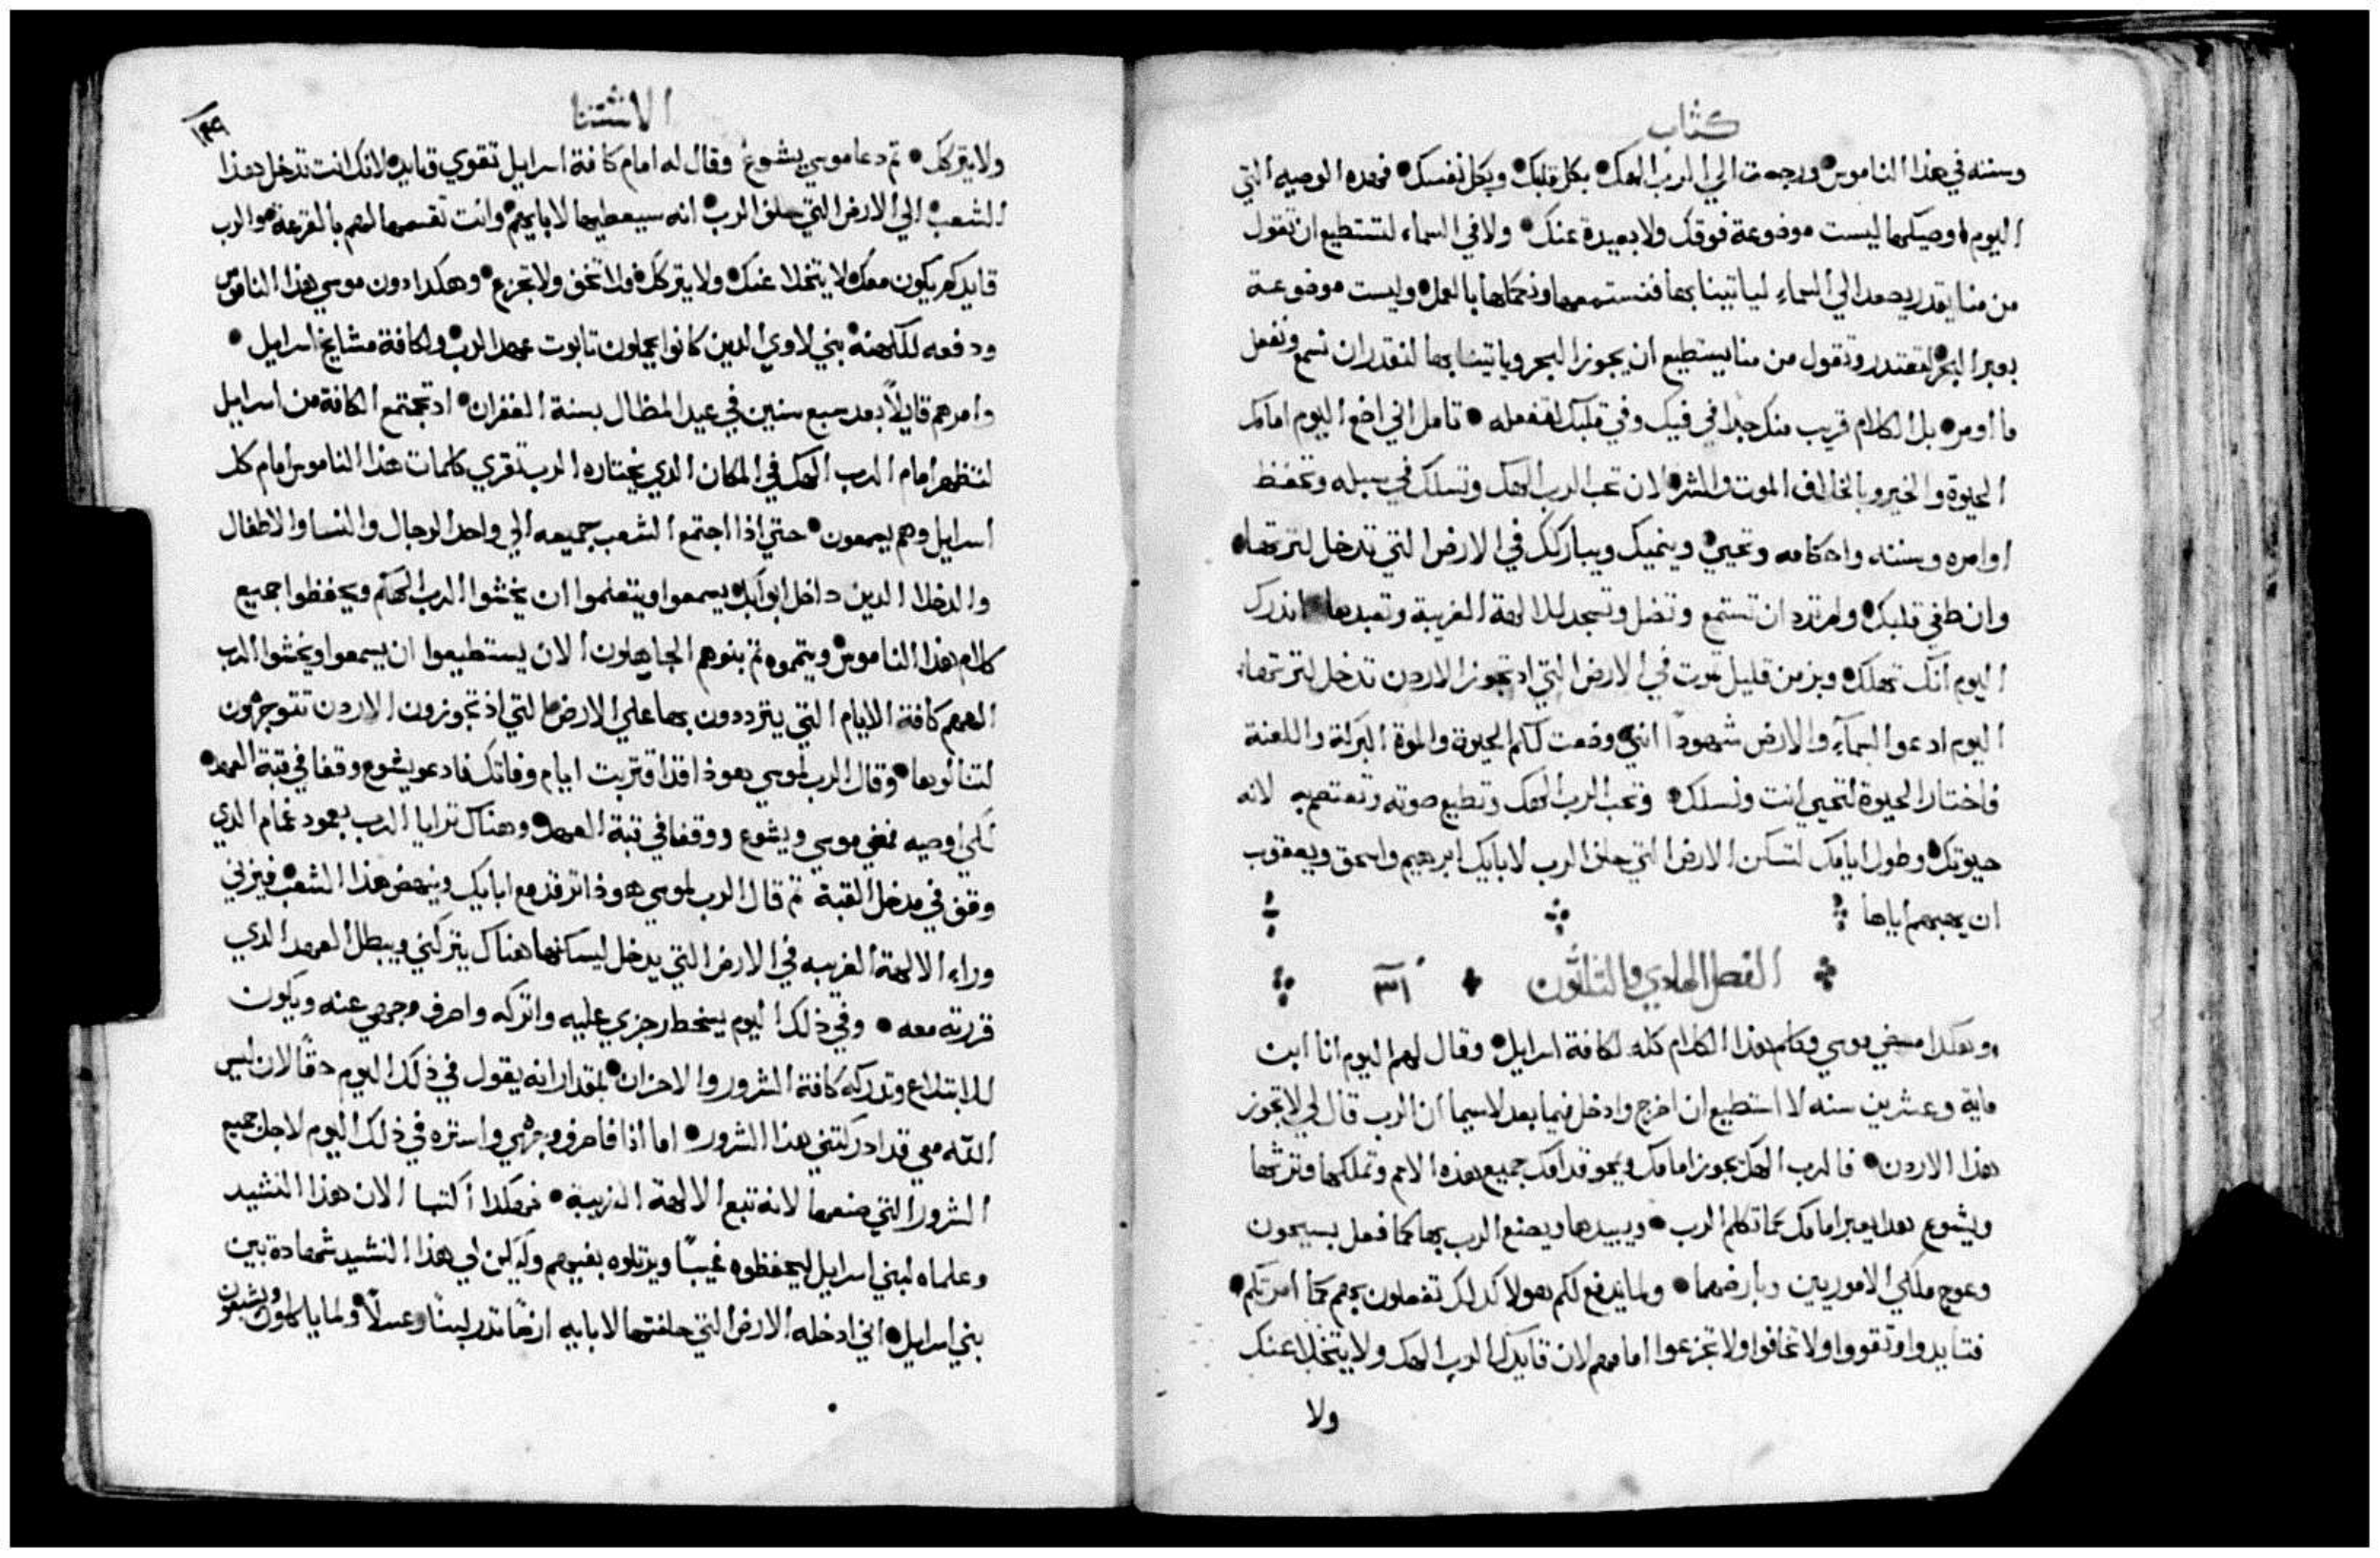 كتاب
وسننه في هذا الناموس ورجعت الي الرب الهك بكل قلبك وبكل نفسك فهده الوصيه التي
اليوم اوصيكها ليست موضوعة فوقك ولا بعيدة عنك ولا في السماء لتستطيع ان تقول
من منا يقدر يصعد الي السماء لياتينا بها فنستمعها ونكملها بالعمل وليست موضوعة
بعبر البحر لتعتدر وتقول من منا يستطيع ان يجوز البحر وياتينا بها لنقدر ان نسمع ونفعل
ما اومر بل الكلام قريب منك جدا في فيك وفي قلبك لتفعله تامل اني اضع اليوم امامك
الحيوة والخير وبالخالف الموت والشر لان تحب الرب الهك وتسلك في سبله وتحفظ
اوامره وسننه واحكامه وتحيي وينميك ويباركك في الارض التي تدخل لترتها
وان طغي قلبك ولم ترد ان تستمع وتضل وتسجد للالهة الغريبة وتعبدها انذرك
اليوم انك تهلك وبزمن قليل تموت في الارض التي اد تجوز الاردن تدخل لترتها
اليوم ادعوا السمآء والارض شهودًا انني وضعت لكم الحيوة والموة البركة واللعنة
فاختار الحيوة لتحيي انت ونسلك وتحب الرب الهك وتطيع صوته وتعتصم به لانه
حيوتك وطول ايامك لتسكن الارض التي حلف الرب لابايك ابرهيم واسحق ويعقوب
ان يهبهم اياها
الفصل الحادي والثلثون ٣١
وهكدا مضي موسي وكلم هذا الكلام كله لكافة اسرايل وقال لهم اليوم انا ابن
ماية وعشرين سنه لا استطيع ان اخرج وادخل فيما بعد لاسيما ان الرب قال لي لا تجوز
هذا الاردن فالرب الهك يجوز امامك ويمحو قدامك جميع هذه الامم وتملكها وترثها
ويشوع هدا يعبر امامك كما تكلم الرب ويبيدها ويصنع الرب بها كما فعل بسيحون
وعوج ملكي الاموريين وبارضهما ولما يدفع لكم هولا كدلك تفعلون بهم كما امرتكم
فتايدوا وتقووا ولا تخافوا ولا تجزعوا امامهم لان قايدك الرب الهك ولا يتخلا عنك
ولا
الانثتنا
١٤٩
ولا يتركك ثم دعا موسي يشوع وقال له امام كافة اسرايل تقوي وتايد لانك انت تدخل هذا
الشعب الي الارض التي حلف الرب انه سيعطيها لابايهم وانت تقسمها لهم بالقرعة والرب
قايدكم يكون معك لا يتخلا عنك ولا يتركك ولا تخف ولا تجزع وهكدا دون موسي هذا الناموس
ودفعه للكهنة بني لاوي الدين كانوا يحملون تابوت عهد الرب ولكافة مشايخ اسرايل
وامرهم قايلاً بعد سبع سنين في عيد المظال بسنة الغفران اد تجتمع الكافة من اسرايل
لتظهر امام الرب الهك في المكان الدي يختاره الرب تقري كلمات هذا الناموس امام كل
اسرايل وهم يسمعون حتي اذا اجتمع الشعب جميعه الي واحد الرجال والنسا والاطفال
والدخلا الدين داخل ابوابك يسمعوا ويتعلموا ان يخشوا الرب الهكم ويحفظوا جميع
كلام هذا الناموس ويتموه ثم بنوهم الجاهلون الان يستطيعوا ان يسمعوا ويخشوا الرب
الههم كافة الايام التي يترددون بها علي الارض التي اذ تجوزون الاردن تتوجهون
لتنالوها وقال الرب لموسي هوذا قد اقتربت ايام وفاتك فادعو يشوع وقفا في قبة العهد
لكي اوصيه فمضي موسي ويشوع ووقفا في قبة العهد وهناك ترايا الرب بعمود غمام الدي
وقف في مدخل القبة ثم قال الرب لموسي هوذا ترقد مع ابايك وينهض هذا الشعب فيزني
وراء الالهة الغريبه في الارض التي يدخل ليسكنها هناك يتركني ويبطل العهد الدي
قررته معه وفي ذلك اليوم يسخط رجزي عليه واتركه واصرف وجهي عنه ويكون
للابتلاع وتدركه كافة الشرور والاحزان بمقدار انه يقول في ذلك اليوم حقًا لان ليس
الله معي قد ادركتني هذا الشرور اما انا فاصرف وجهي واستره في ذلك اليوم لاجل جميع
الشرور التي صنعها لانه تبع الالهة الغريبة فهكدا اكتبا الان هذا النشيد
وعلماه لبني اسرايل ليحفظوه غيبًا ويرتلوه بفيهم وليكن لي هذا النشيد شهادة بين
بني اسرايل اني ادخله الارض التي حلفتها لابايه ارضًا تدر لبنًا وعسلاً ولما ياكلون ويشبعون